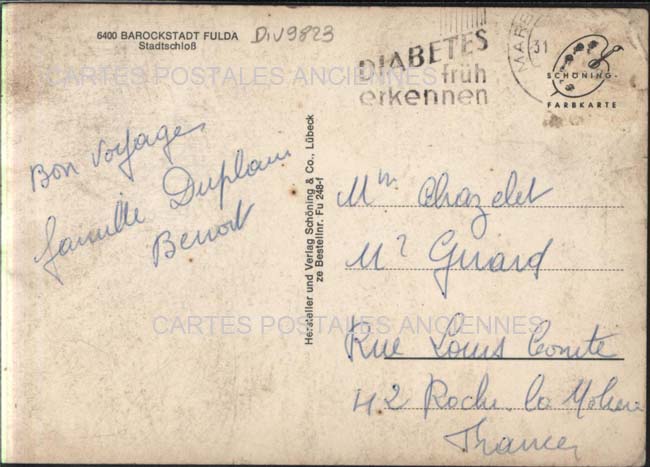 6400 BAROCKSTADT FULDA
Stadtschloß
Div9823
DIABETES
früh
erkennen
31
SCHÖNING-
FARBKARTE
CARTES POSTALES ANCIENNES
Bon Voyage
famille Duplain
Benoit
Hersteller und Verlag Schöning & Co., Lübeck
ze Bestellnr. Fu 248-f
Mme Chazelet
Mr Guiard
CARTES POSTALES ANCIENNES
Rue Louis Comte
42 Roche la Moliere
France